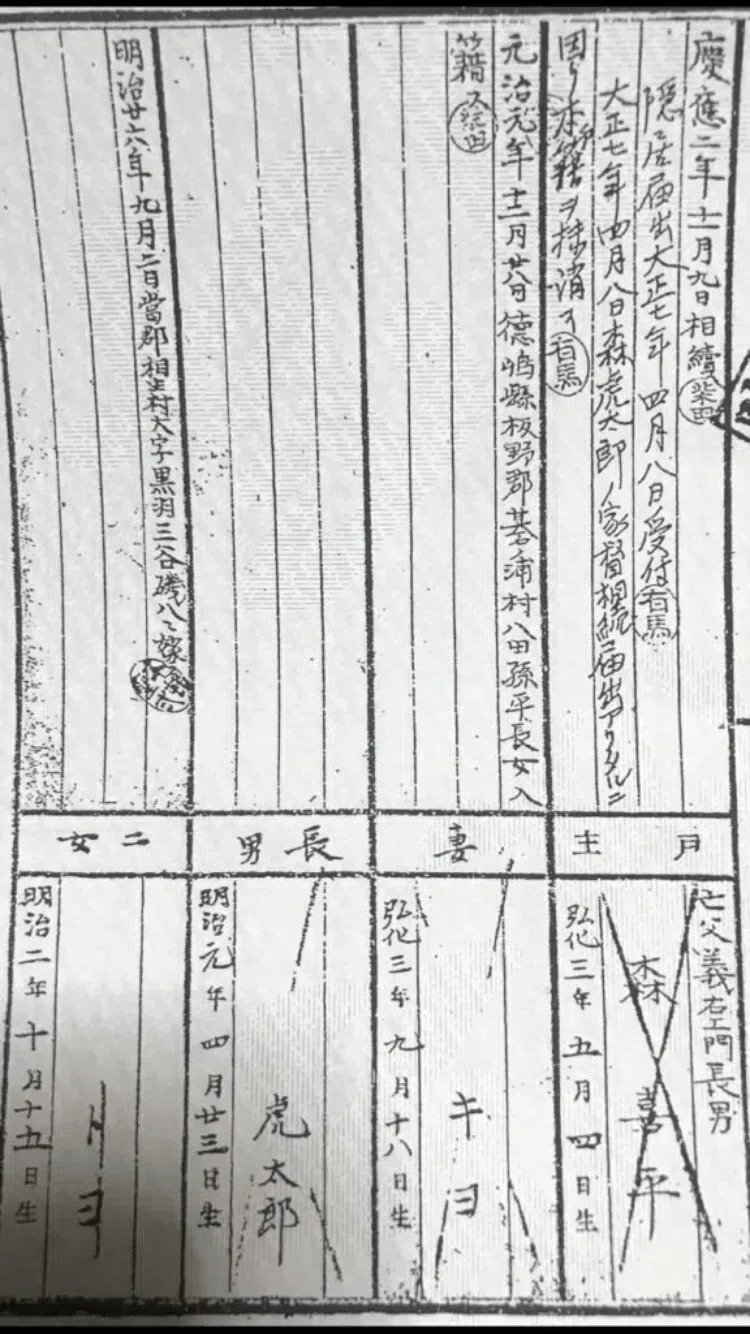 慶應二年十一月九日相續 柴田
隠居届出大正七年四月八日受付 有馬
大正七年四月八日森虎太郎ノ家督相続届出アリタルニ
因リ本籍ヲ抹消ス 有馬
戸主
亡父義右エ門長男
森喜平
弘化三年五月四日生
元治元年十二月廿八日徳嶋縣板野郡基浦村八田孫平長女入
籍ス 柴田
妻
キヨ
弘化三年九月十八日生
長男
虎太郎
明治元年四月廿三日生
明治廿六年九月二日當郡相生村大字黒羽三谷磯八ヘ嫁
二女
明治二年十月十五日生